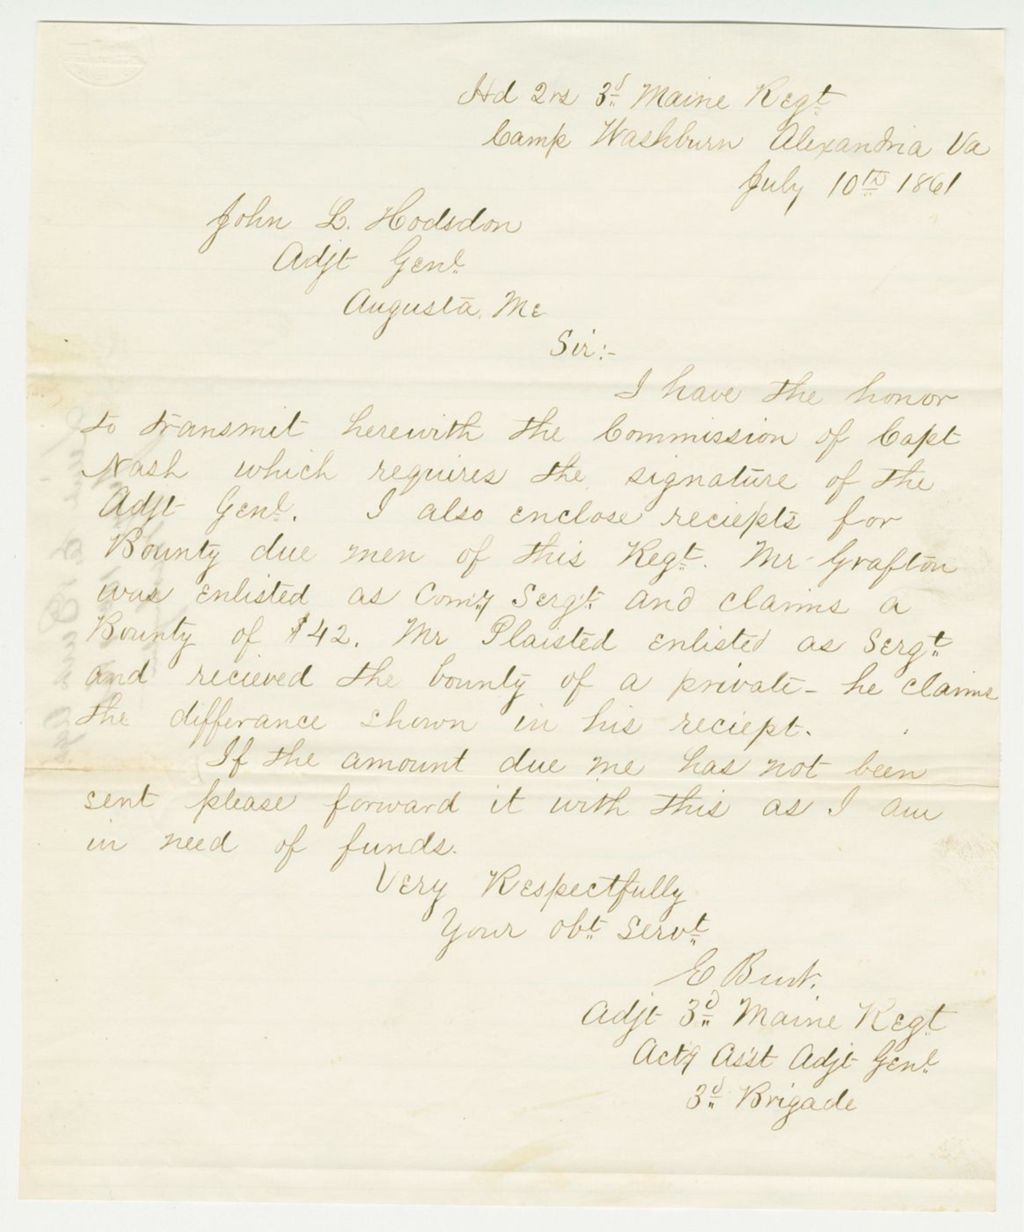 Hd Qrs 3d Maine Regt
Camp Washburn Alexandria Va
July 10th 1861
John L. Hodsdon
Adjt Genl
Augusta, Me
Sir:-
I have the honor
to transmit herewith the Commission of Capt
Nash which requires the signature of the
Adjt Genl. I also enclose reciepts for
Bounty due men of this Regt. Mr Grafton
was enlisted as Comy Sergt and claims a
Bounty of $42. Mr Plaisted enlisted as Sergt
and recieved the bounty of a private - he claims
the differance shown in his reciept.
If the amount due me has not been
sent please forward it with this as I am
in need of funds.
Very Respectfully
Your obt Servt
E Burt.
Adjt 3d Maine Regt
Actg Asst Adjt Genl
3d Brigade